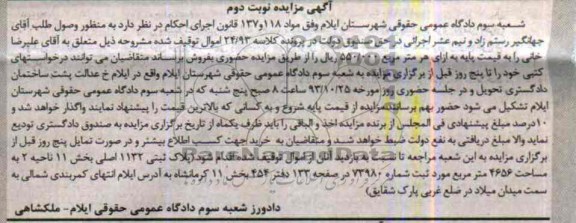 آگهی مزایده نوبت دوم
شعبه سوم دادگاه عمومی حقوقی شهرستان ایلام وفق مواد ۱۱۸ و ۱۳۷ قانون اجرای احکام در نظر دارد به منظور وصول طلب آقای
جهانگیر رستم زاد و نیم عشر اجرائی در حق صندوق دولت در پرونده کلاسه ۲۴/۹۳ اموال توقیف شده مشروحه ذیل متعلق به آقای علیرضا
خانی را به قیمت پایه به ازای هر متر مربع ریال را از طریق مزایده حضوری بفروش برساند متقاضیان می توانند درخواستهای
کتبی خود را تا پنج روز قبل از برگزاری مزایده به شعبه سوم دادگاه عمومی حقوقی شهرستان ایلام واقع در ایلام خ عدالت پشت ساختمان
دادگستری تحویل و در جلسه حضوری روز مورخه ۹۳/۱۰/۲۵ ساعت ۸ صبح پنج شنبه که در شعبه سوم دادگاه عمومی حقوقی شهرستان
ایلام تشکیل می شود حضور بهم برسانند مزایده از قیمت پایه شروع و به کسانی که بالاترین قیمت را پیشنهاد نمایند واگذار خواهد شد و
۱۰درصد مبلغ پیشنهادی فی المجلس از برنده مزایده اخذ و الباقی را باید ظرف یکماه از تاریخ برگزاری مزایده به صندوق دادگستری تودیع
نماید والا مبلغ دریافتی به نفع دولت ضبط خواهد شد و متقاضیان به خرید جهت کسب اطلاع بیشتر و در صورت تمایل پنج روز قبل از
برگزاری مزایده به این شعبه مراجعه تا نسبت به بازدید آنان از اموال توقیف شده اقدام شود(پلاک ثبتی ۱۱۳۲ اصلی بخش ۱۱ ناحیه ۲ به
مساحت ۴۶۵۶ متر مربع مورد ثبت شماره ۷۳۹۸۰ در صفحه ۱۳۳ دفتر ۴۵۴ بخش ۱۱ کرمانشاه به آدرس ایلام انتهای کمربندی شمالی به
سمت میدان میلاد در ضلع غربی پارک شقایق)
دادورز شعبه سوم دادگاه عمومی حقوقی ایلام- ملکشاهی